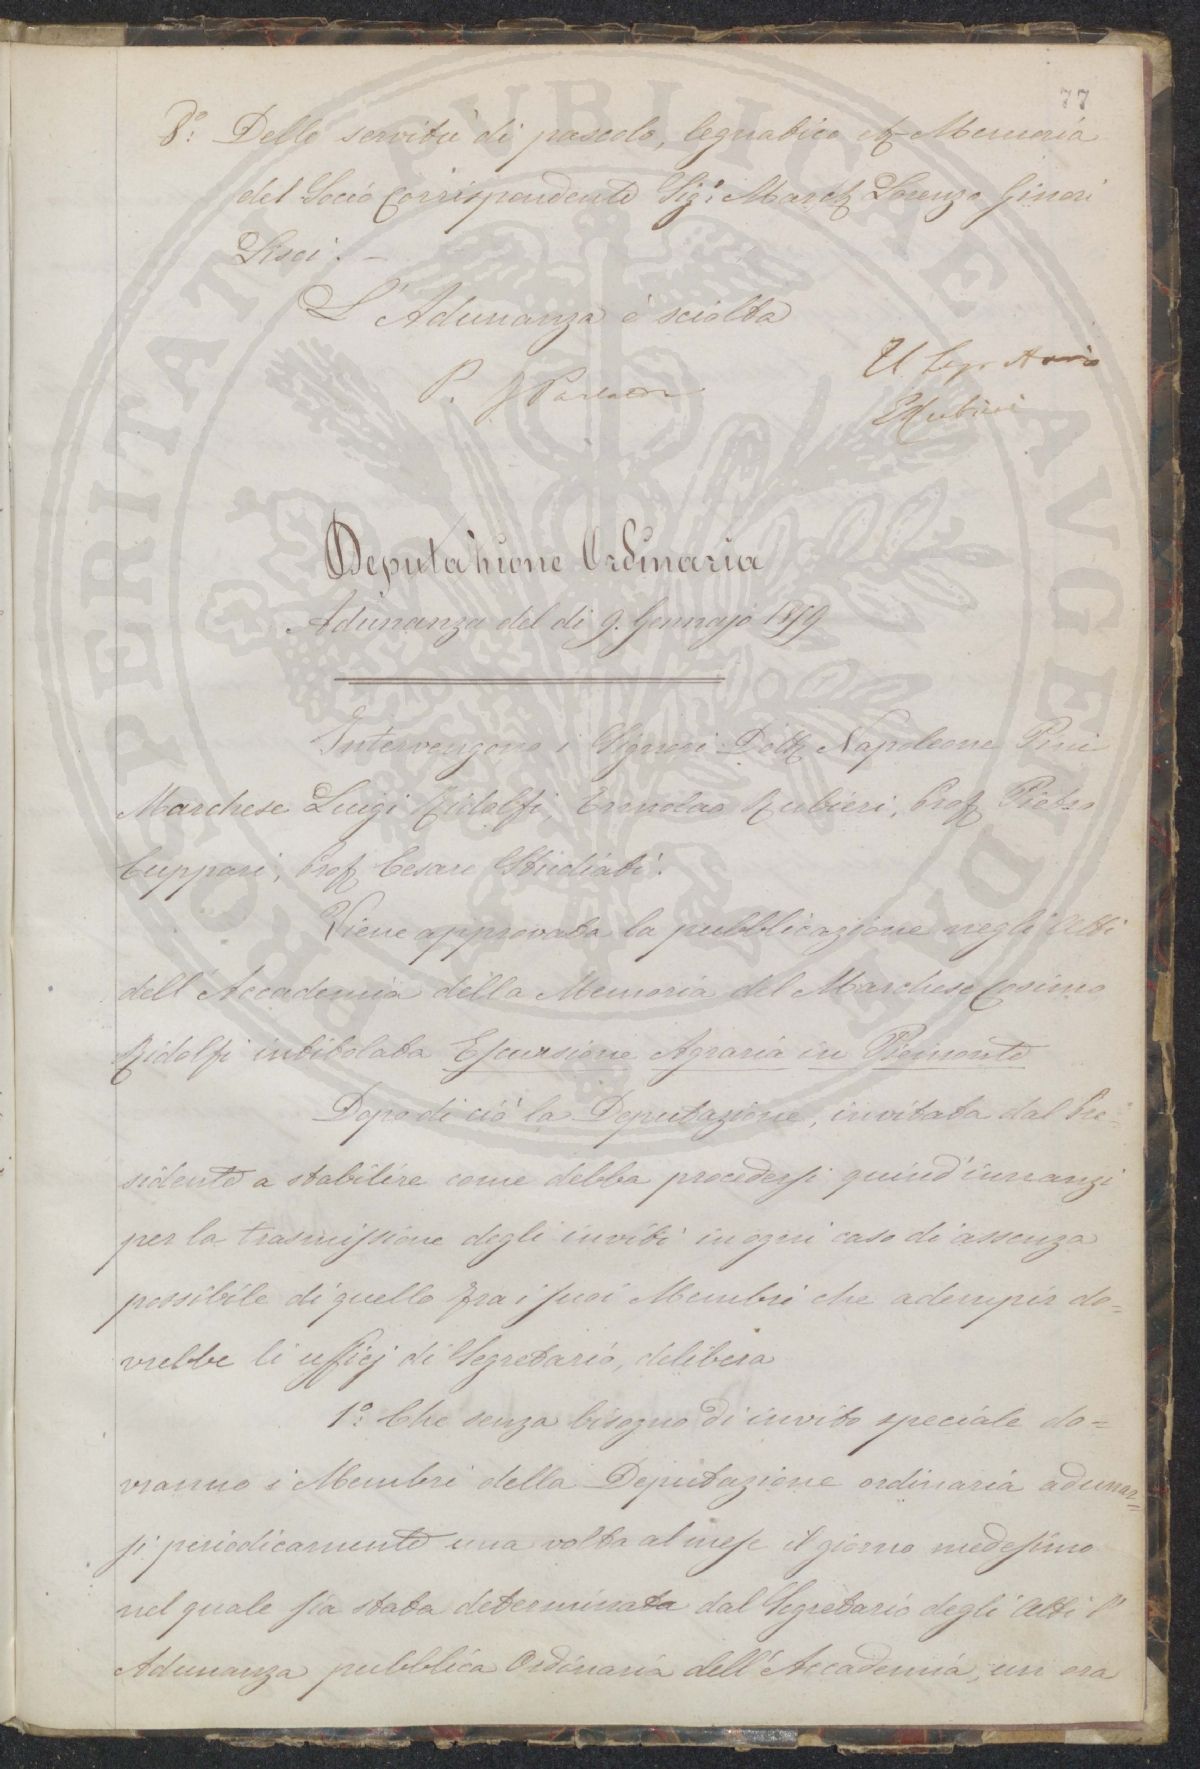 77
8.º Delle servitù di pascolo, legnatico &c Memoria
del Socio Corrispondente Sig.r March Lorenzo Ginori
Lisci. –
L'Adunanza è sciolta
Il Segr. Atti
P.
ERubieri
Deputazione Ordinaria
Adunanza del dì 9. Gennajo 1859
Intervengono i Signori Dott Napoleone Pini
Marchese Luigi Ridolfi, Ermolao Rubieri, Prof Pietro
Cuppari, Prof Cesare Studiati.
Viene approvata la pubblicazione negli Atti
dell'Accademia della Memoria del Marchese Cosimo
Ridolfi intitolata Escursione Agraria in Piemonte
Dopo di ciò la Deputazione, invitata dal Pre=
sidente a stabilire come debba procedersi quind'innanzi
per la trasmissione degli inviti in ogni caso di assenza
possibile di quello fra i suoi Membri che adempir do=
vrebbe li ufficj di Segretario, delibera
1.º Che senza bisogno di invito speciale do=
vranno i Membri della Deputazione ordinaria adunar=
si periodicamente una volta al mese il giorno medesimo
nel quale sia stata determinata dal Segretario degli Atti l'
Adunanza pubblica Ordinaria dell'Accademia, un ora
PROSPERITATI PVBLICAE AVGENDAE